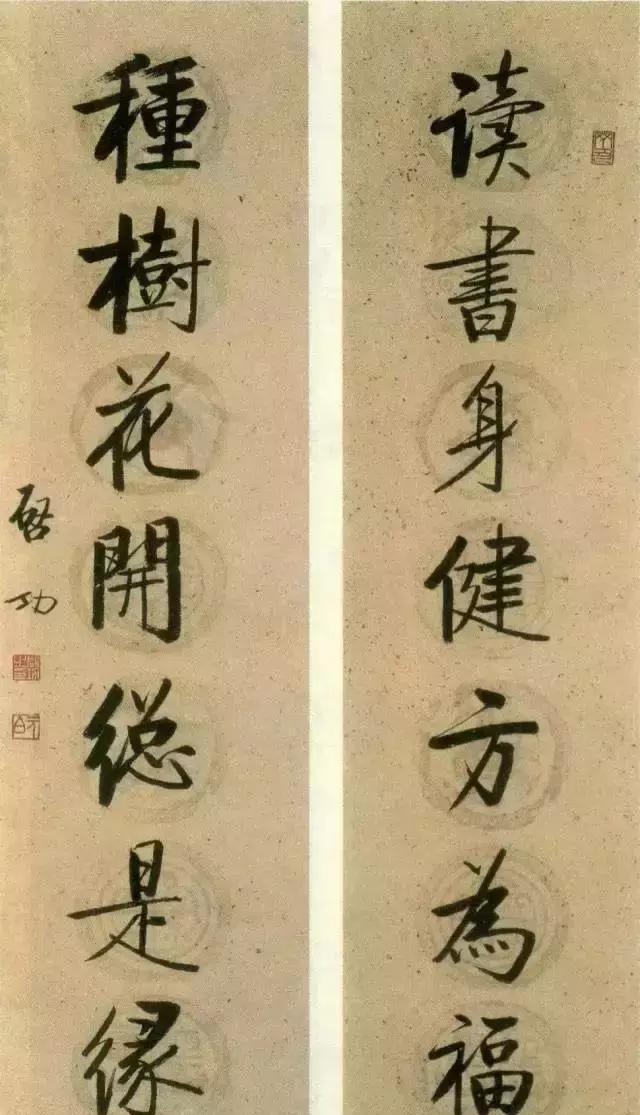 读书身健方為福
種樹花開総是縁
啓功